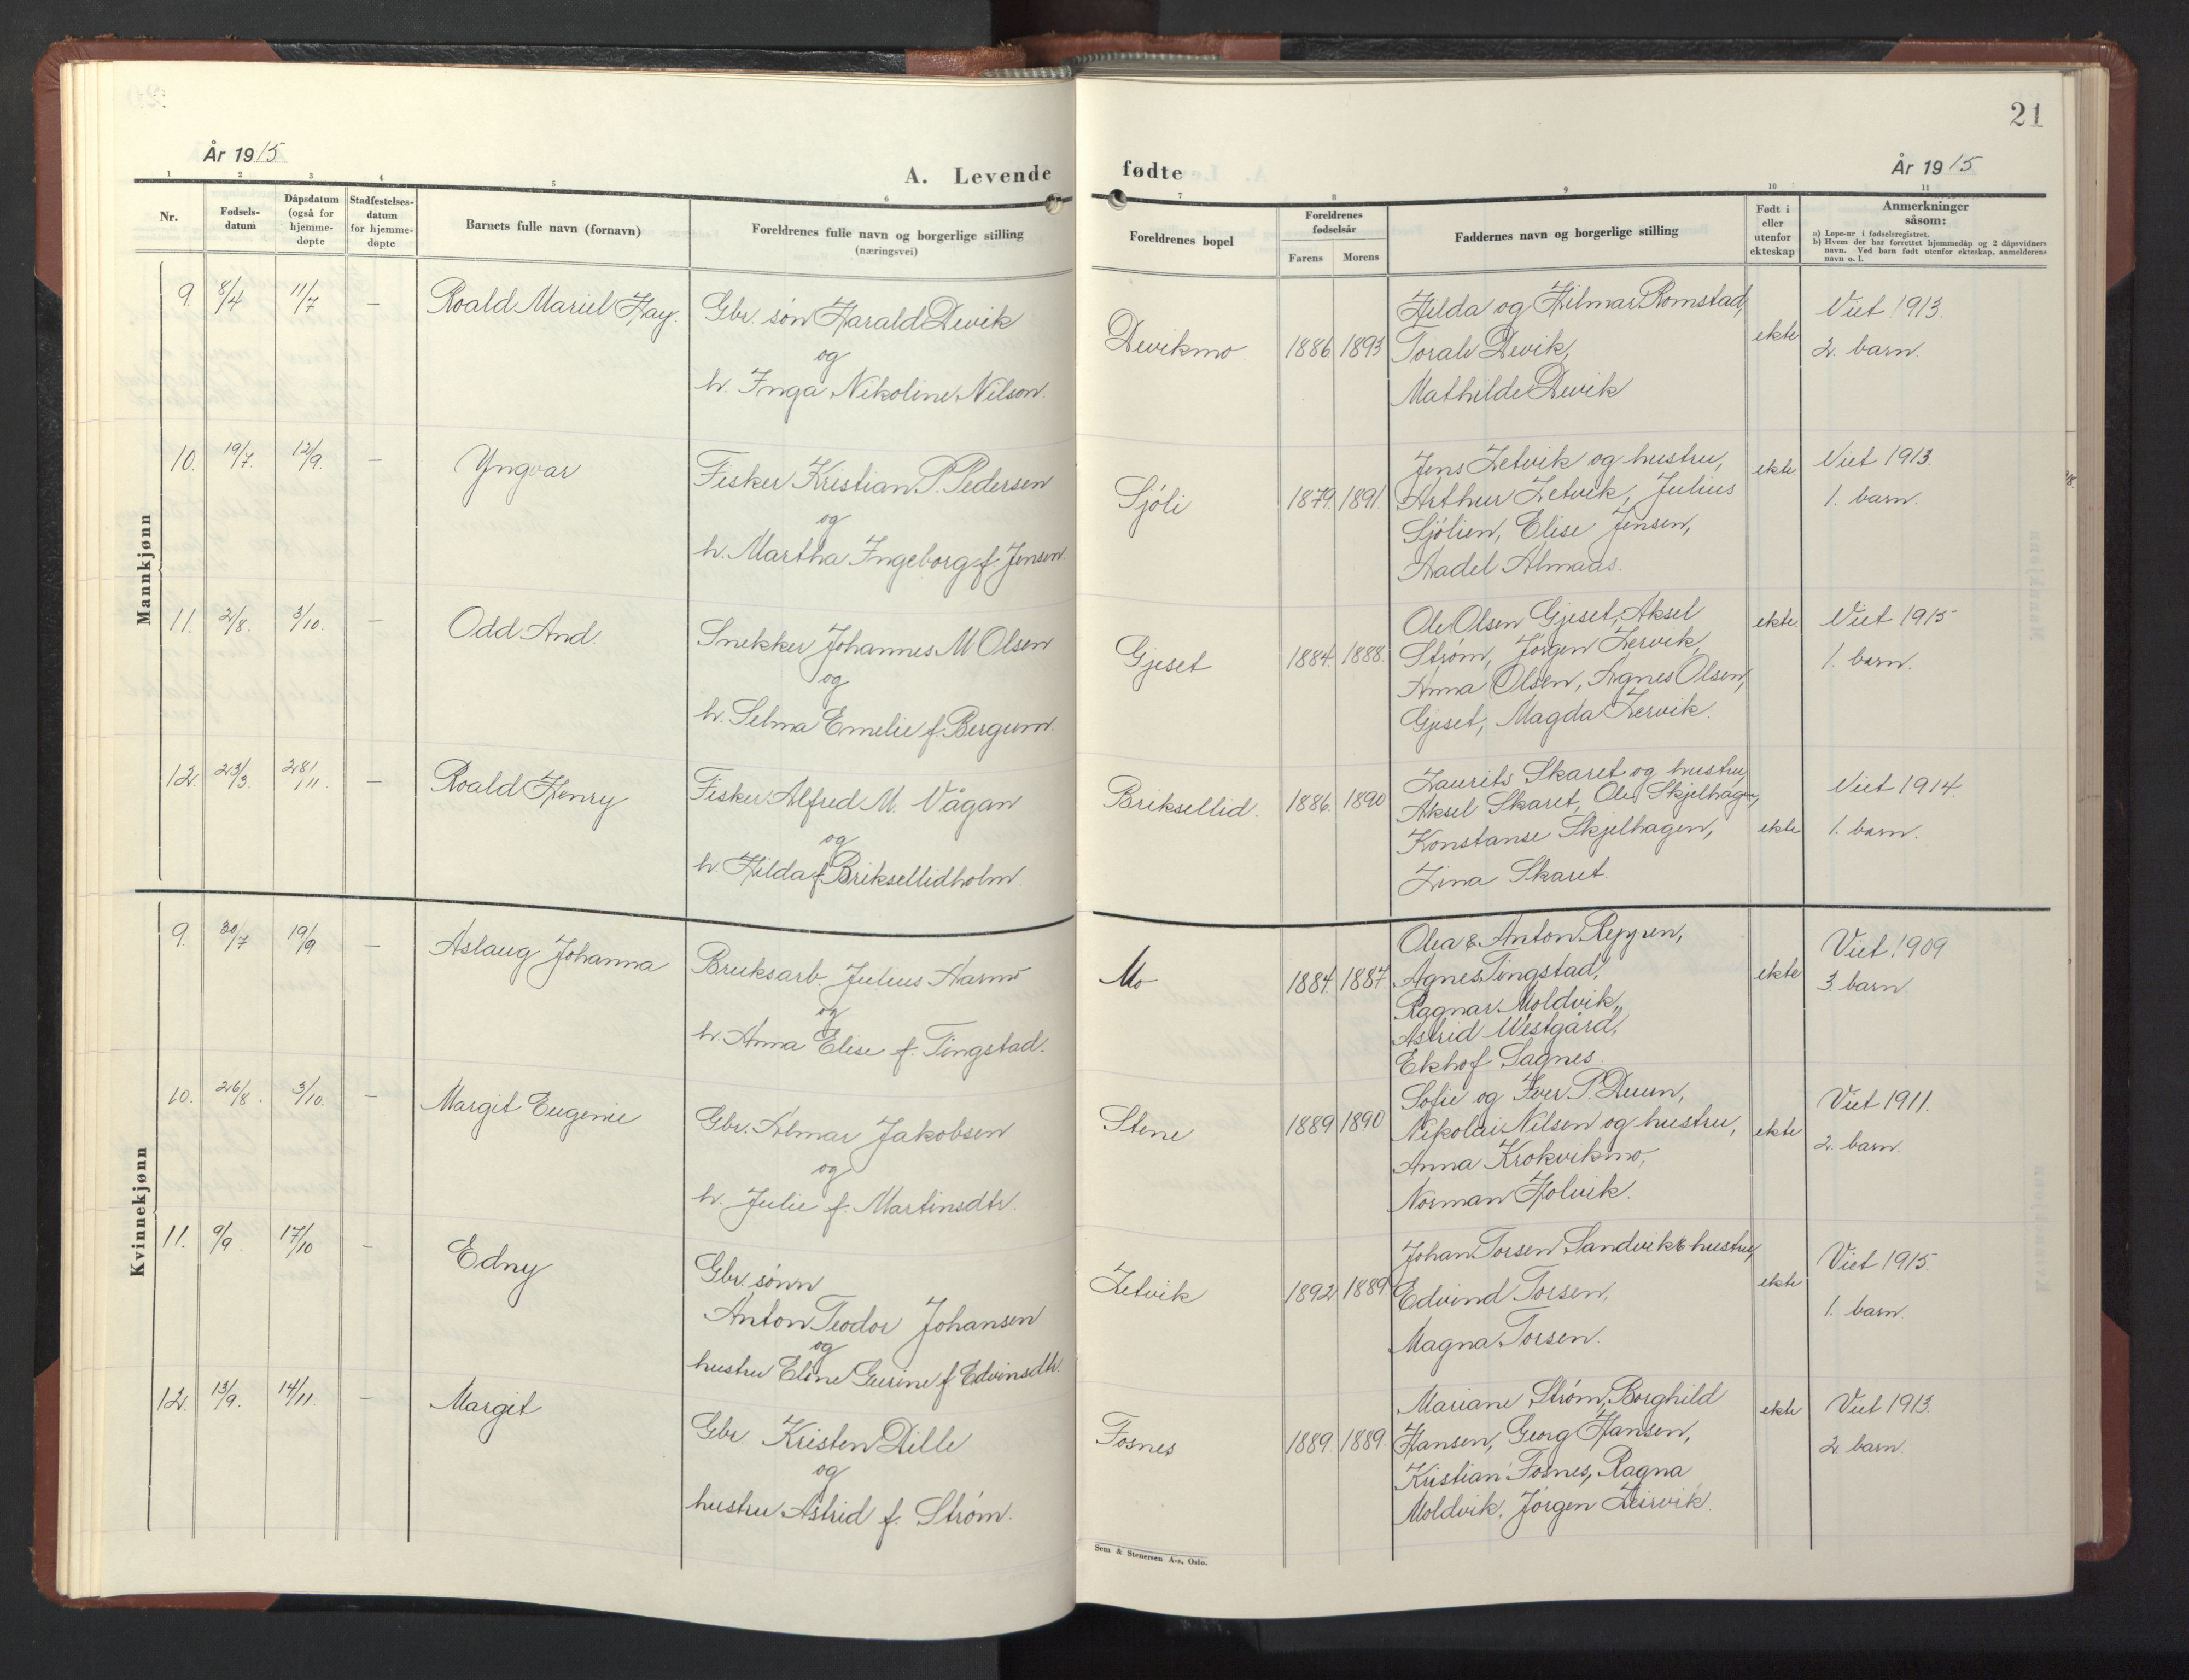 21
År 1915
A. Levende
fødte
År 1915
1 2 3 4 5 6 7 8 9 10 11
Nr.
Fødsels-
datum
Dåpsdatum
(også for
hjemme-
døpte
Stadfestelses-
datum
for hjemme-
døpte
Barnets fulle navn (fornavn)
Foreldrenes fulle navn og borgerlige stilling
(næringsvei)
Foreldrenes bopel
Foreldrenes
fødselsår
Farens Morens
Faddernes navn og borgerlige stilling
Født i
eller
utenfor
ekteskap
Anmerkninger
såsom:
a) Løpe-nr i fødselsregistret.
b) Hvem der har forrettet hjemmedåp og 2 dåpsvidners
navn. Ved barn født utenfor ekteskap, anmelderens
navn o. l.
Mannkjønn
9. 8/4 11/7 — Roald Mariel Hay.
Gbr. søn Harald Devik
og
h. Inga Nikoline Nilson.
Devikmo 1886 1893
Hilda og Hilmar Romstad,
Toralv Devik,
Mathilde Devik
ekte
Viet 1913.
2. barn.
10. 19/7. 12/9. — Yngvar
Fisker Kristian P. Pedersen
og
h. Martha Ingeborg f. Jensen.
Sjøli 1879. 1891.
Jens Letvik og hustru,
Arthur Letvik, Julius
Sjølien, Elise Jensen,
Aadel Almaas.
ekte.
Viet 1913.
1. barn.
11. 2/8. 3/10. — Odd And.
Snekker Johannes M. Olsen
og
h. Selma Emelie f. Bergum.
Gjeset 1884. 1888.
Ole Olsen Gjeset, Aksel
Strøm, Jørgen Lervik,
Anna Olsen, Agnes Olsen,
Gjeset, Magda Lervik.
ekte.
Viet 1915
1. barn.
12. 23/3. 28/11 — Roald Henry
Fisker Alfred M. Vågan
og
h. Hilda f. Briksellidholm.
Briksellid. 1886. 1890
Laurits Skaret og hustru,
Aksel Skaret, Ole Skjelhagen,
Konstanse Skjelhagen,
Lina Skaret.
ekte
Viet 1914.
1. barn.
Kvinnekjønn
9. 30/7 19/9 — Aslaug Johanna
Bruksarb. Julius Aarmo
og
h. Anna Elise f. Tingstad.
Mo 1884. 1887
Olea & Anton Reppen,
Agnes Tingstad,
Ragnar Moldvik,
Astrid Westgård,
Ekhof Sagnes.
ekte
Viet 1909
3. barn
10. 26/8. 3/10. — Margit Eugenie
Gbr. Almar Jakobsen
og
h. Julie f. Martinsdtr.
Stene 1889 1890
Sofie og Iver P. Duun,
Nikolai Nilsen og hustru,
Anna Krokvikmo,
Norman Holvik.
ekte
Viet 1911.
2. barn.
11. 9/9. 17/10 — Edny
Gbr. sønn
Anton Teodor Johansen
og
hustru Eline Gurine f. Edvinsdtr.
Letvik 1892 1889
Johan Torsen Sandvik & hustru,
Edvind Torsen,
Magna Torsen.
ekte
Viet 1915.
1. barn.
12. 13/9. 14/11 — Margit
Gbr. Kristen Dille
og
hustru Astrid f. Strøm.
Fosnes 1889. 1889.
Mariane Strøm, Borghild
Hansen, Georg Hansen,
Kristian Fosnes, Ragna
Moldvik, Jørgen Leirvik.
ekte
Viet 1913.
2. barn.
Sem & Stenersen A-s, Oslo.